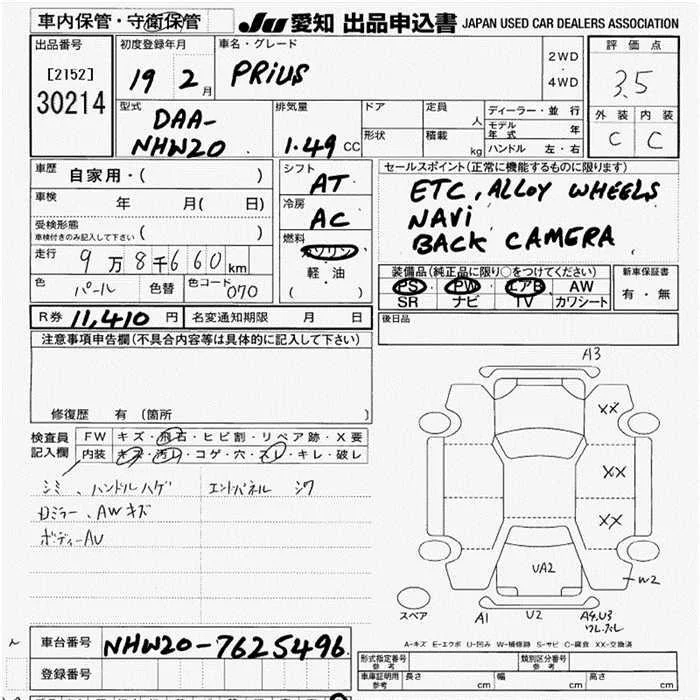 車内保管・守衛保管 JU 愛知 出品申込書 JAPAN USED CAR DEALERS ASSOCIATION
出品番号 初度登録年月 車名・グレード 評価点
[2152] 19 2月 PRIUS 2WD・4WD 3.5
30214
型式 DAA-NHW20 排気量 1.49 CC ドア 定員 人 ディーラー・並行 外装 内装
形状 積載 kg モデル年式 年 C C
ハンドル 左・右
車歴 自家用・( ) シフト AT セールスポイント(正常に機能するものに限ります)
車検 年 月( 日) 冷房 AC ETC, ALLOY WHEELS
受検形態 NAVI
車検付きのみ記入して下さい ( ) 燃料 ガソリン・軽・油 ( ) BACK CAMERA
走行 9万8千660km
色 パール 色替 色コード 070
装備品(純正品に限り○をつけてください) 新車保証書
PS PW エアB AW 有・無
SR ナビ TV カワシート
R券 11,410 円 名変通知期限 月 日 後日品
注意事項申告欄(不具合内容等は具体的に記入して下さい)
修復歴 有 (箇所 )
検査員記入欄 FW キズ・飛石・ヒビ割・リペア跡・X要
内装 キズ・汚レ・コゲ・穴・スレ・キレ・破レ
シミ、ハンドルハゲ エンドパネル シワ
Dミラー、AWキズ
ボディーAU
A3
XX
XX
XX
UA2
W2
スペア A1 U2 A4.U3
A-キズ E-エクボ U-凹み W-補修跡 S-サビ C-腐食 XX-交換済
車台番号 NHW20-7625496
登録番号
形式指定番号 参考 類別区分番号 参考
車庫証明用 参考 長さ cm 幅 cm 高さ cm